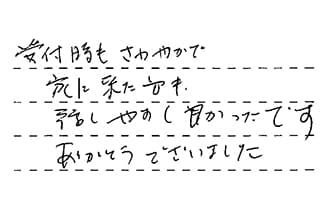 受付時も さわやかで
家に来た方も
話しやすく良かったです
ありがとうございました